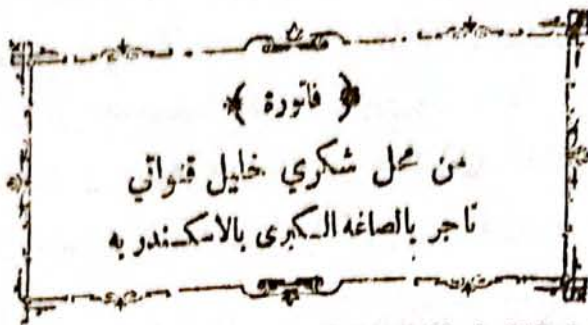 ﴿ فاتورة ﴾
من محل شكري خليل قنواتي
تاجر بالصاغه الكبرى بالاسكندريه